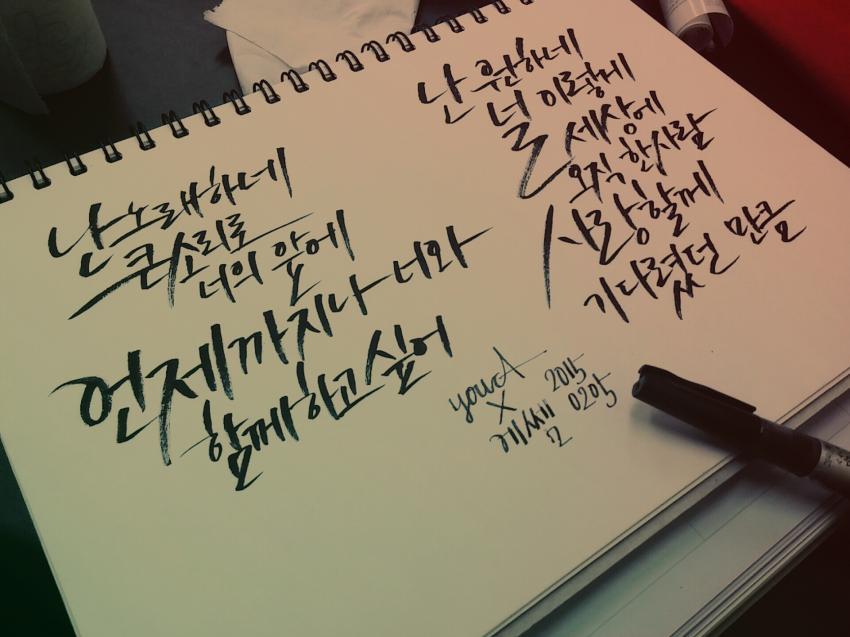 난 노래하네
큰 소리로
너의 앞에
언제까지나 너와
함께하고 싶어
난 원하네
널 이렇게
세상에
오직 한사람
사랑할께
기다렸던 만큼
yourA
X
에쎌
2015